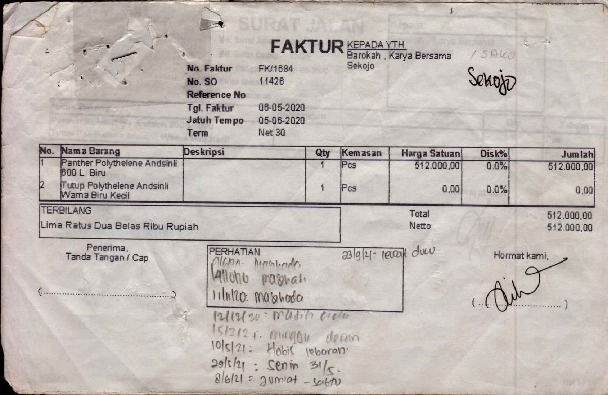 SURAT JALAN
FAKTUR
KEPADA YTH.
Barokah , Karya Bersama
Sekojo
/ SAKO
Sekojo
No. Faktur FK/1684
No. SO 11426
Reference No
Tgl. Faktur 06-05-2020
Jatuh Tempo 05-06-2020
Term Net 30
No. Nama Barang Deskripsi Qty Kemasan Harga Satuan Disk% Jumlah
1 Panther Polythelene Andsinli 1 Pcs 512.000,00 0.0% 512.000,00
600 L Biru
2 Tutup Polythelene Andsinli 1 Pcs 0,00 0.0% 0,00
Warna Biru Kecil
TERBILANG
Lima Ratus Dua Belas Ribu Rupiah
Total 512.000,00
Netto 512.000,00
Penerima,
Tanda Tangan / Cap
PERHATIAN
Hormat kami,
10/5/21: Habis lebaran
29/5/21: Senin 31/5.
8/6/21 = Jumat - Sabtu